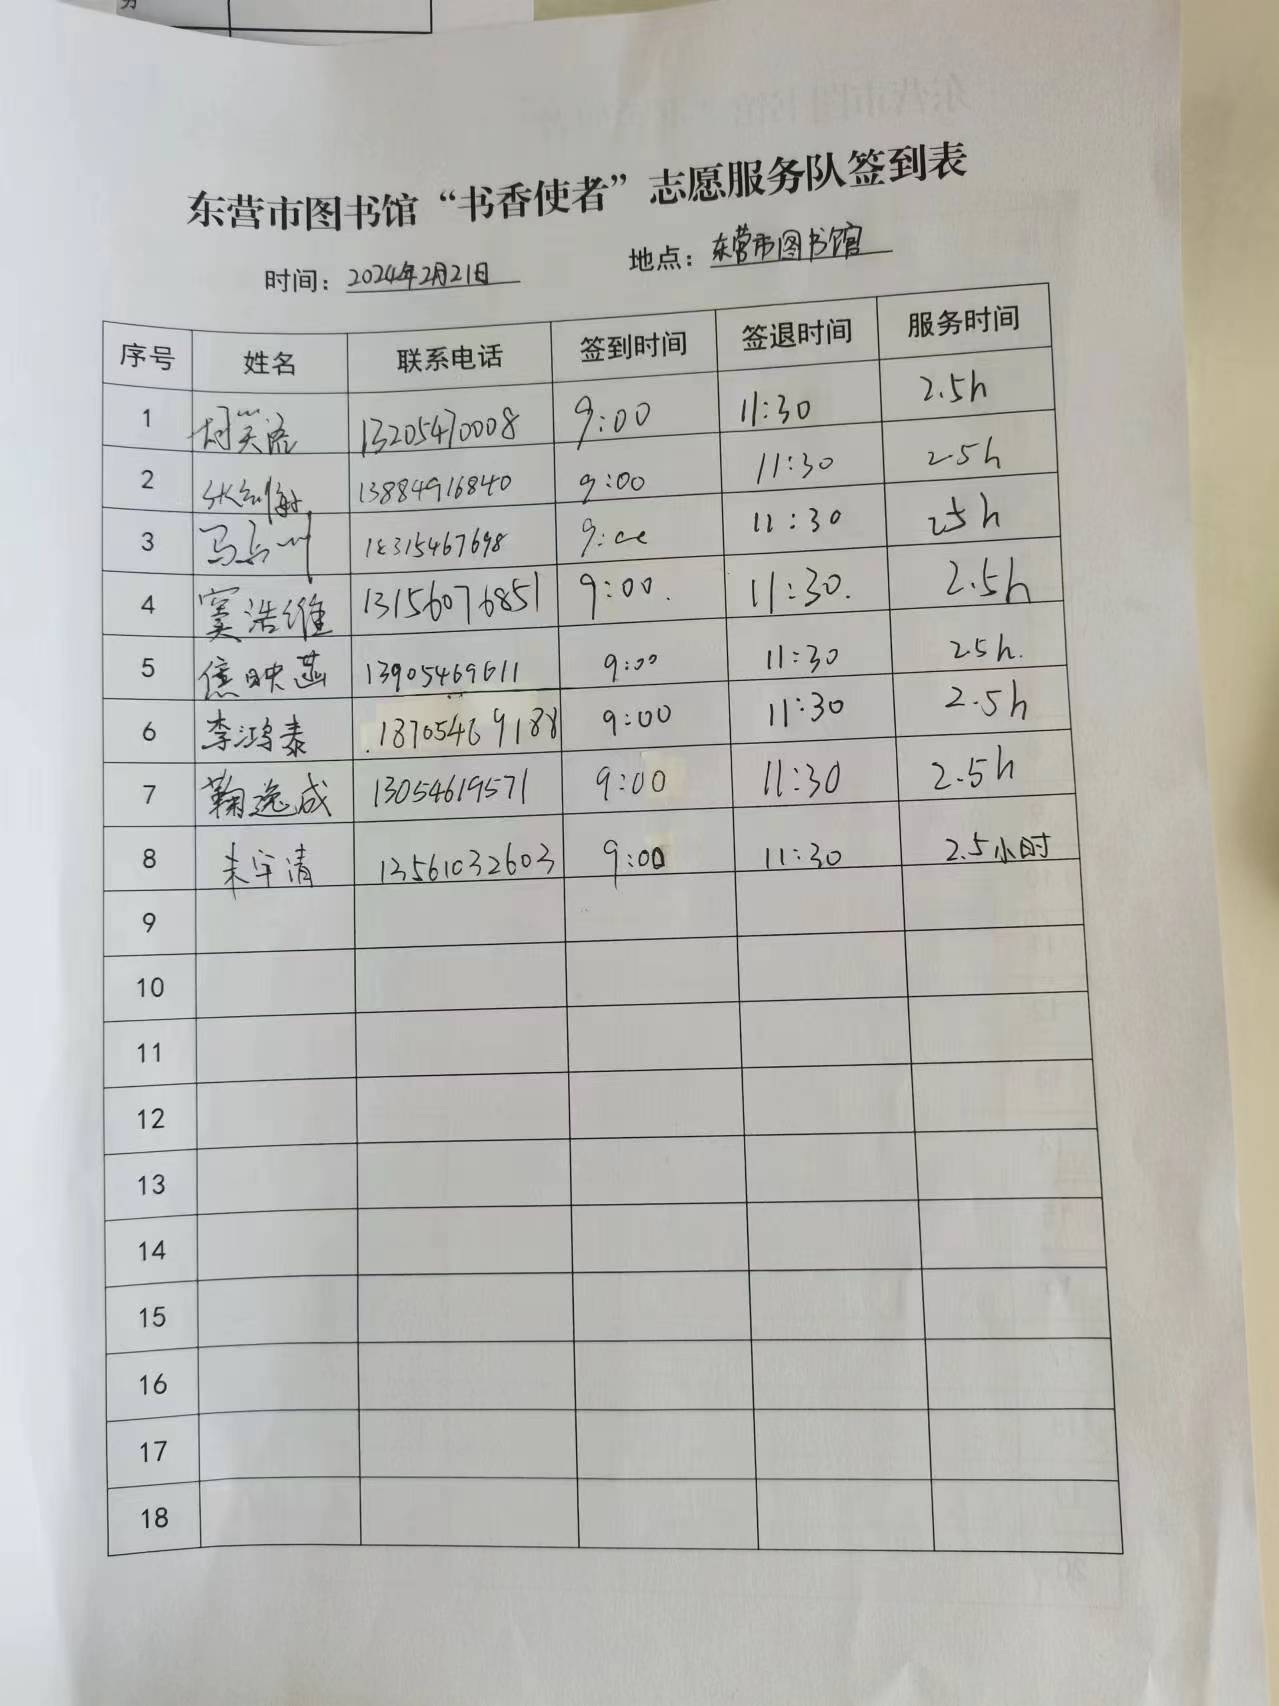 东营市图书馆“书香使者”志愿服务队签到表
时间：2024年2月21日 地点：东营市图书馆
序号 姓名 联系电话 签到时间 签退时间 服务时间
1 13205470008 9:00 11:30 2.5h
2 13884916840 9:00 11:30 2.5h
3 马 18315467698 9:00 11:30 2.5h
4 窦浩维 13156076851 9:00. 11:30. 2.5h
5 映菡 13905469611 9:00 11:30 2.5h.
6 李鸿泰 18705469188 9:00 11:30 2.5h
7 鞠逸成 13054619571 9:00 11:30 2.5h
8 清 13561032603 9:00 11:30 2.5小时
9
10
11
12
13
14
15
16
17
18